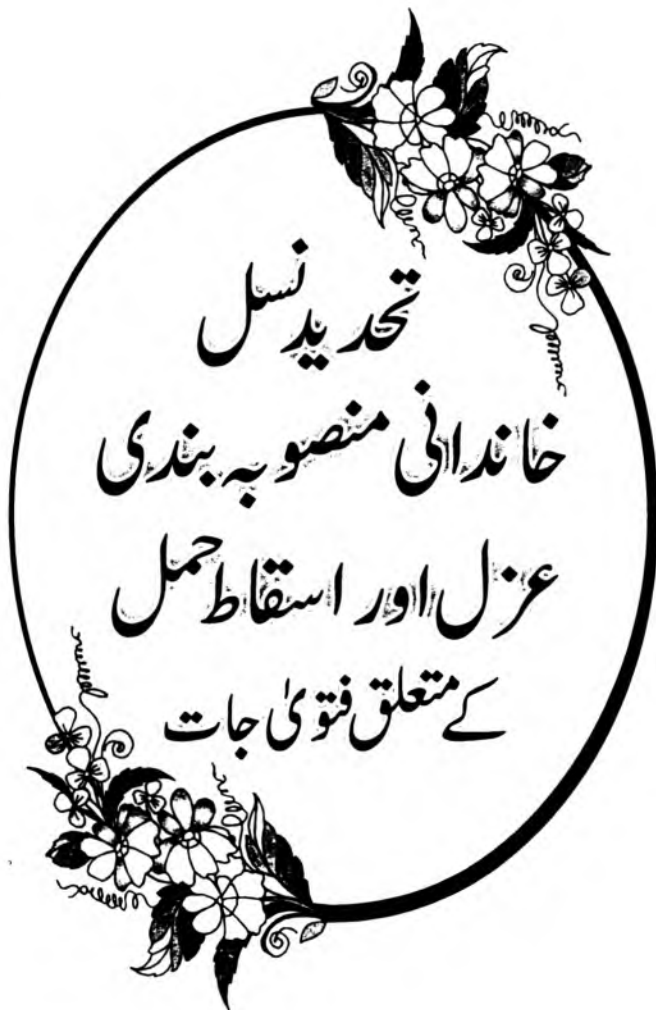 تحدید نسل
خاندانی منصوبہ بندی
عزل اور اسقاط حمل
کے متعلق فتویٰ جات